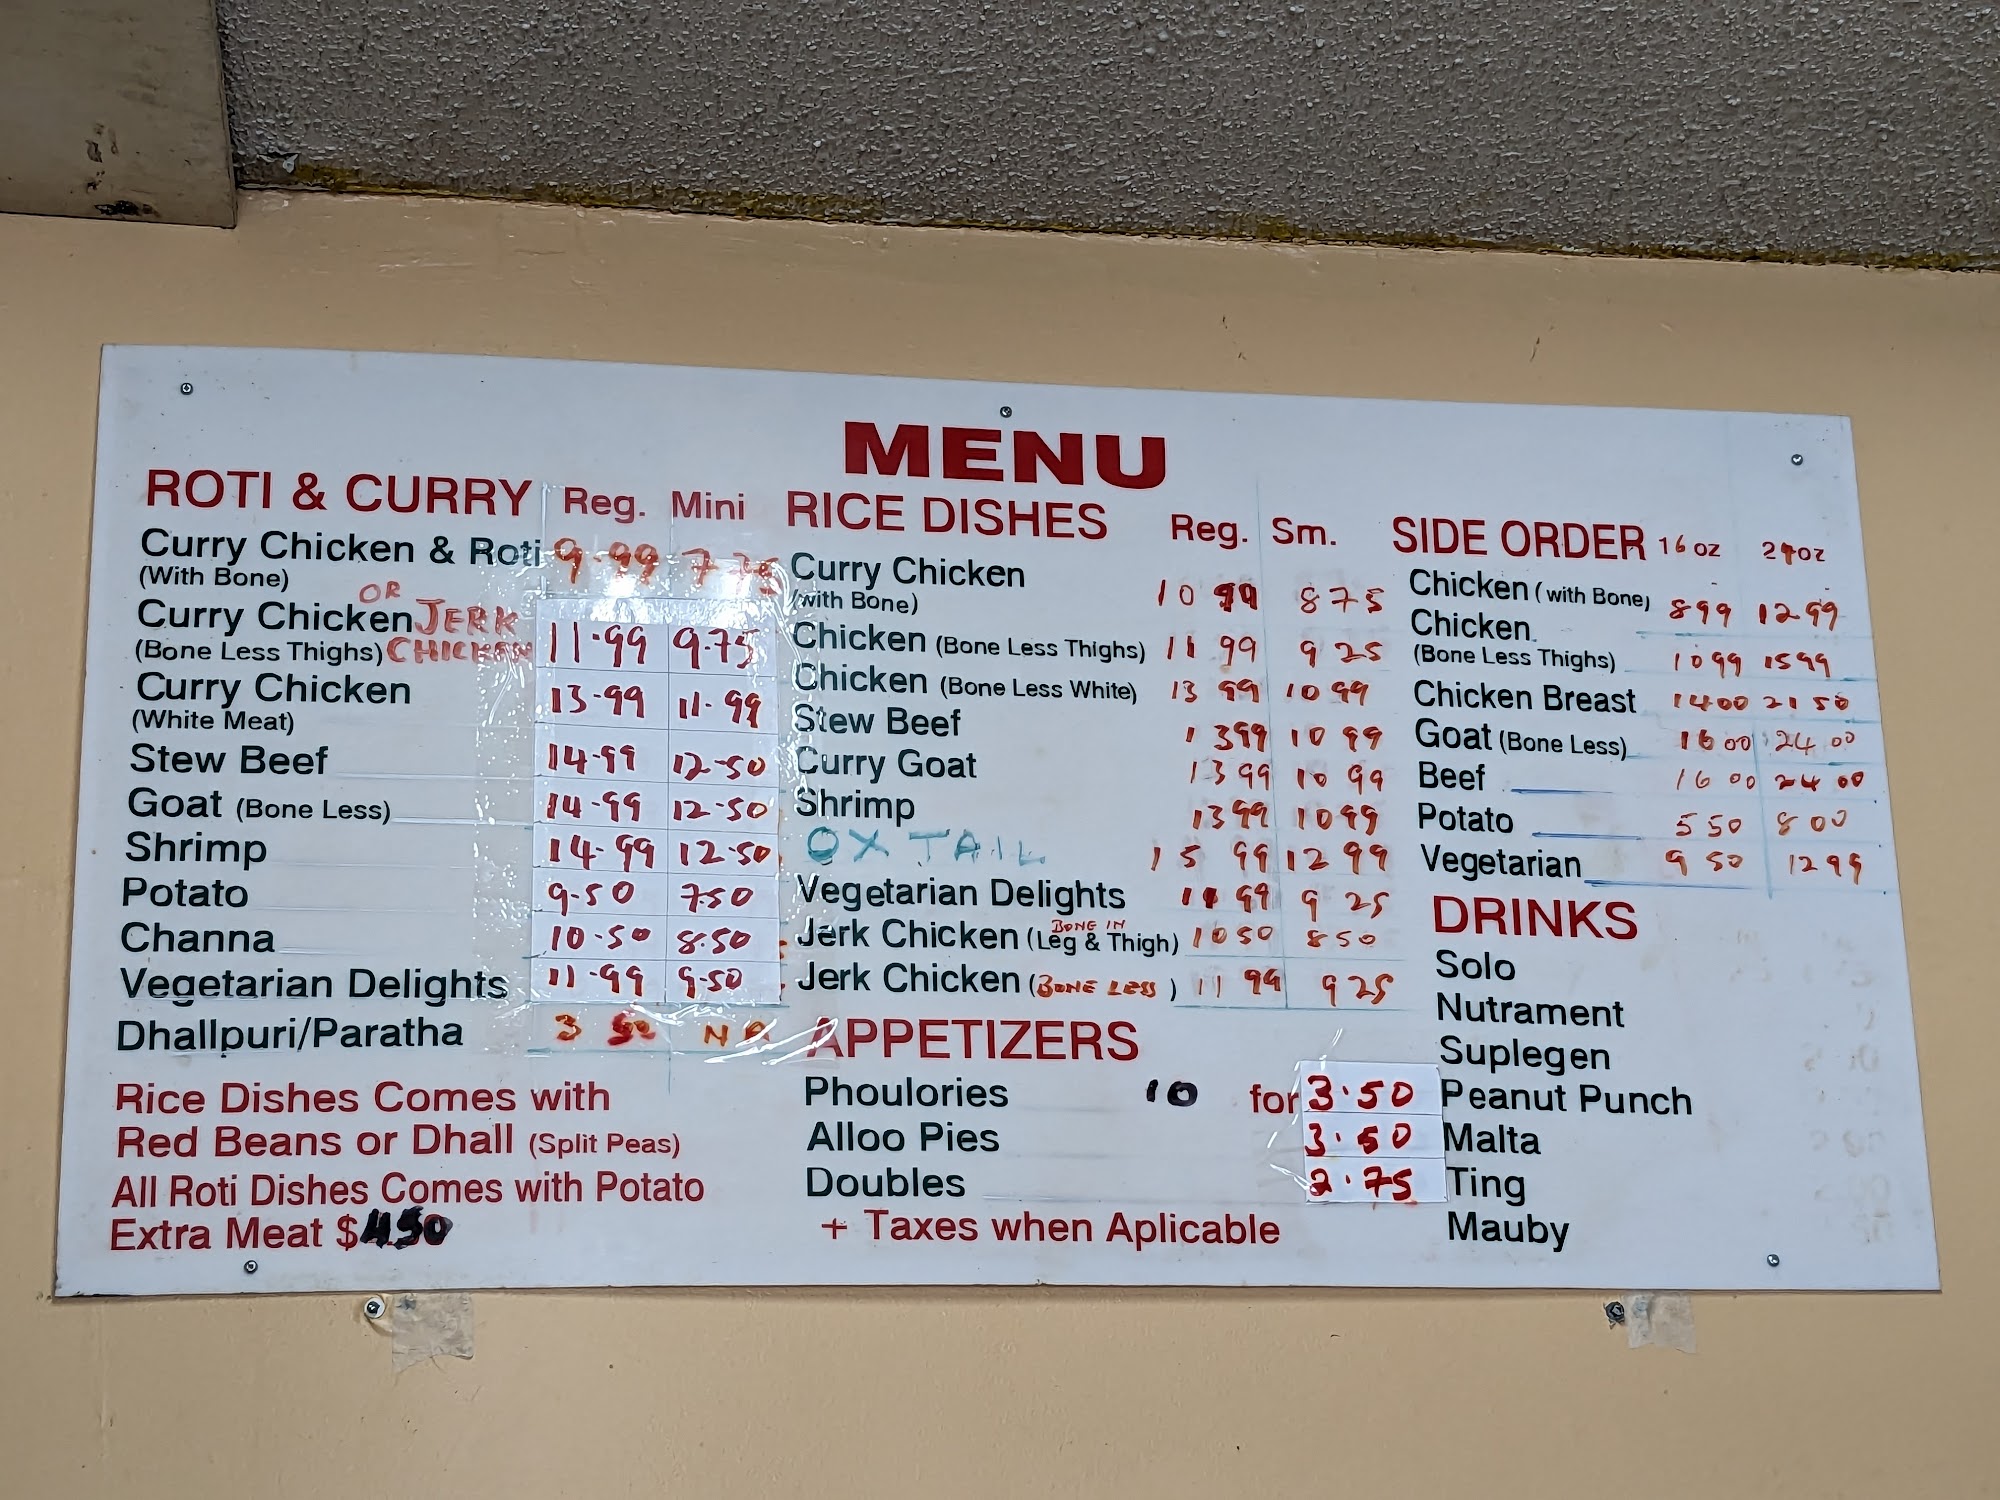 MENU
ROTI & CURRY Reg. Mini
Curry Chicken & Roti 9.99 7.75
(With Bone)
OR
Curry Chicken JERK
(Bone Less Thighs) CHICKEN 11.99 9.75
Curry Chicken 13.99 11.99
(White Meat)
Stew Beef 14.99 12.50
Goat (Bone Less) 14.99 12.50
Shrimp 14.99 12.50
Potato 9.50 7.50
Channa 10.50 8.50
Vegetarian Delights 11.99 9.50
Dhallpuri/Paratha 3 50 N A
Rice Dishes Comes with
Red Beans or Dhall (Split Peas)
All Roti Dishes Comes with Potato
Extra Meat $4.50
RICE DISHES Reg. Sm.
Curry Chicken
(with Bone) 10 99 8 75
Chicken (Bone Less Thighs) 11 99 9 25
Chicken (Bone Less White) 13 99 10 99
Stew Beef 13 99 10 99
Curry Goat 13 99 10 99
Shrimp 13 99 10 99
OX TAIL 15 99 12 99
Vegetarian Delights 11 99 9 25
BONE IN
Jerk Chicken (Leg & Thigh) 10 50 8 50
Jerk Chicken (BONE LESS) 11 99 9 25
APPETIZERS
Phoulories 10 for 3.50
Alloo Pies 3.50
Doubles 2.75
+ Taxes when Aplicable
SIDE ORDER 16 oz 24 oz
Chicken (with Bone) 8 99 12 99
Chicken
(Bone Less Thighs) 10 99 15 99
Chicken Breast 14 00 21 50
Goat (Bone Less) 16 00 24 00
Beef 16 00 24 00
Potato 5 50 8 00
Vegetarian 9 50 12 99
DRINKS
Solo
Nutrament
Suplegen
Peanut Punch
Malta
Ting
Mauby